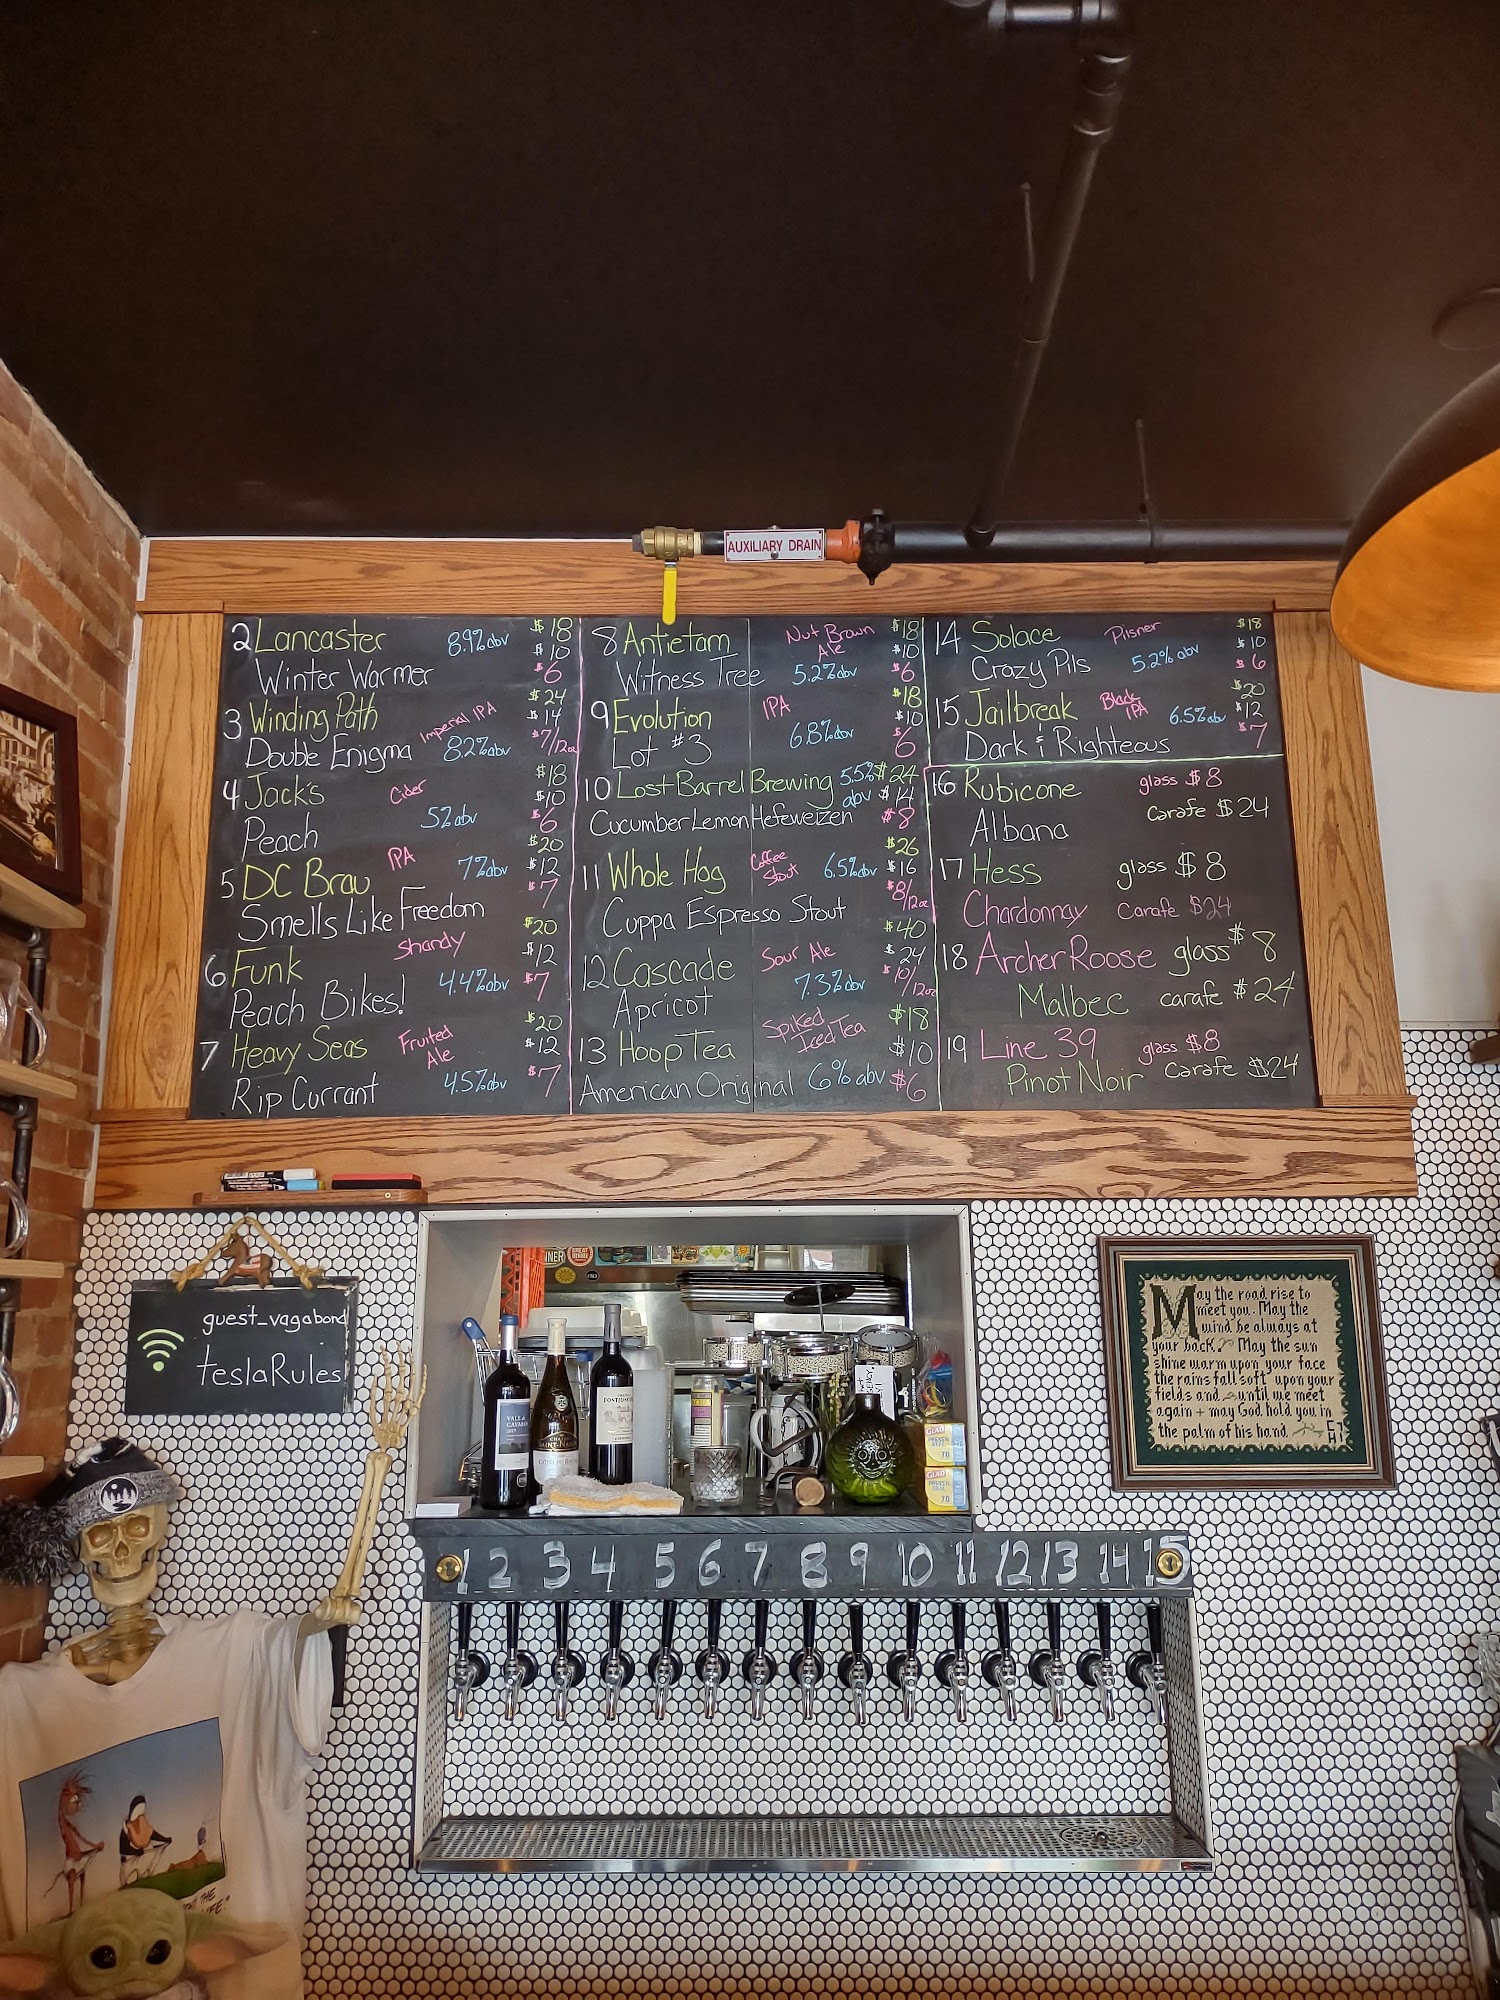 AUXILIARY DRAIN
2 Lancaster 8.9% abv $18
$10
Winter Warmer $6
3 Winding Path Imperial IPA $24
$14
Double Enigma 8.2% abv $7/12oz
4 Jack's Cider $18
$10
Peach 5% abv $6
5 DC Brau IPA 7% abv $20
$12
$7
Smells Like Freedom
6 Funk Shandy $20
$12
Peach Bikes! 4.4% abv $7
7 Heavy Seas Fruited Ale $20
$12
Rip Currant 4.5% abv $7
8 Antietam Nut Brown Ale $18
$10
Witness Tree 5.2% abv $6
9 Evolution IPA $18
$10
Lot #3 6.8% abv $6
10 Lost Barrel Brewing 5.5% abv $24
$14
Cucumber Lemon Hefeweizen $8
11 Whole Hog Coffee Stout 6.5% abv $26
$16
$8/12oz
Cuppa Espresso Stout
12 Cascade Sour Ale $40
$24
Apricot 7.3% abv $10/12oz
13 Hoop Tea Spiked Iced Tea $18
$10
American Original 6% abv $6
14 Solace Pilsner $18
$10
Crazy Pils 5.2% abv $6
15 Jailbreak Black IPA 6.5% abv $20
$12
Dark & Righteous $7
16 Rubicone glass $8
Albana carafe $24
17 Hess glass $8
Chardonnay Carafe $24
18 Archer Roose glass $8
Malbec carafe $24
19 Line 39 glass $8
Pinot Noir carafe $24
guest_vagabond
teslaRules
May the road rise to
meet you. May the
wind be always at
your back. May the sun
shine warm upon your face
the rains fall soft upon your
fields and until we meet
again + may God hold you in
the palm of his hand.
GLAD
PRESS'N
70
GLAD
PRESS'N
70
1 2 3 4 5 6 7 8 9 10 11 12 13 14 15